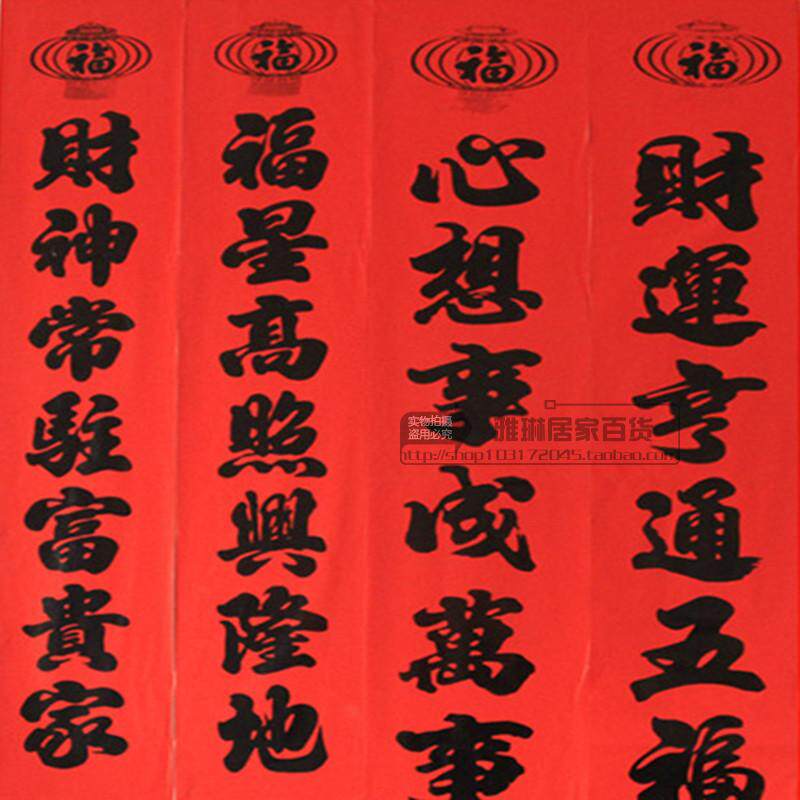 福
財運亨通五福
福
心想事成萬事
福
福星高照興隆地
福
財神常駐富貴家
实物拍摄
盗用必究
雅琳居家百货
http://shop103172045.taobao.com